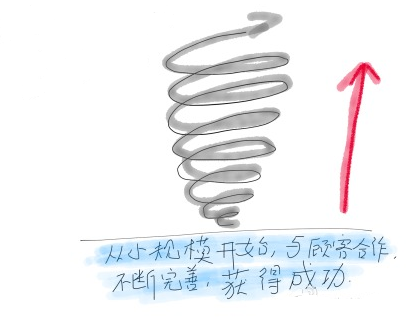 从小规模开始，与顾客合作，
不断完善，获得成功.